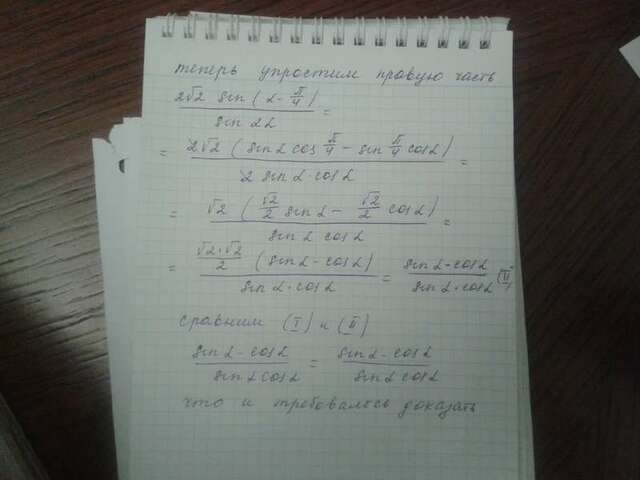 теперь упростим правую часть
2√2 sin (α - π/4) / sin 2α =
= 2√2 (sin α cos π/4 - sin π/4 cos α) / 2 sin α · cos α =
= √2 (√2/2 sin α - √2/2 cos α) / sin α cos α =
= √2·√2/2 (sin α - cos α) / sin α · cos α = sin α - cos α / sin α · cos α (II)
сравним (I) и (II)
sin α - cos α / sin α cos α = sin α - cos α / sin α cos α
что и требовалось доказать